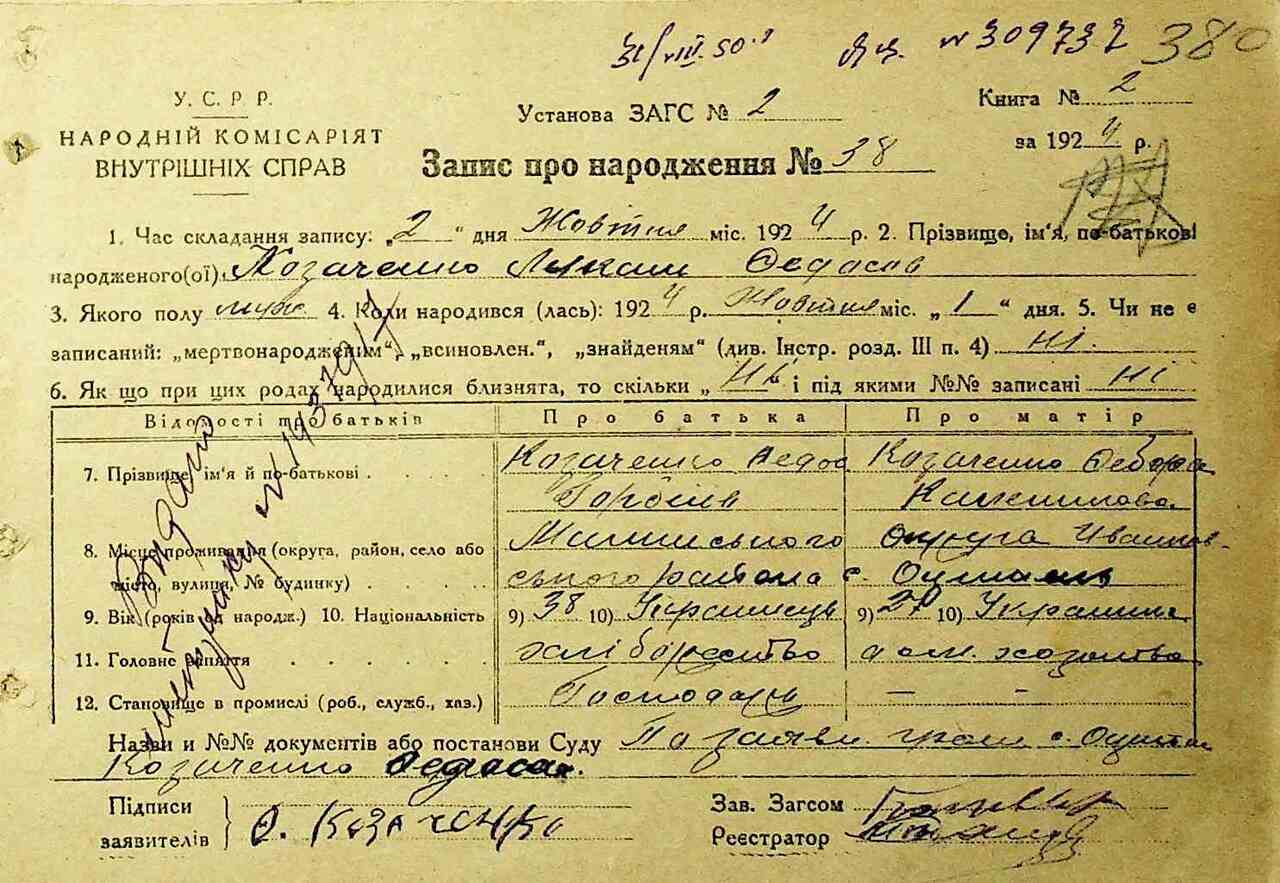 31/VIII.50 № 309737 380
У. С. Р. Р.
НАРОДНІЙ КОМІСАРІЯТ
ВНУТРІШНІХ СПРАВ
Установа ЗАГС № 2
Книга № 2
за 1924 р.
Запис про народження № 38
1. Час складання запису: „2“ дня Жовтня міс. 1924 р. 2. Прізвище, ім'я, по-батькові
народженого(ої) Козаченко Лукаш Федосів
3. Якого полу муж. 4. Коли народився (лась): 1924 р. Жовтня міс. „1“ дня. 5. Чи не є
записаний: „мертвонародженим“, „всиновлен.“, „знайденям“ (див. Інстр. розд. III п. 4) ні.
6. Як що при цих родах народилися близнята, то скільки „ні“ і під якими №№ записані ні
Відомості про батьків Про батька Про матір
7. Прізвище, ім'я й по-батькові Козаченко Федос Козаченко
Гордіїв
8. Місце проживання (округа, район, село або місто, вулиця, № будинку) округа Іванков-
ського района с.
9. Вік (років од народж.) 10. Національність 9) 38 10) Українець 9) 27 10) Українка
11. Головне заняття хліборобство дом. хозяйство
12. Становище в промислі (роб., служб., хаз.) Господарь — —
Назви и №№ документів або постанови Суду По заяви гром. с.
Козаченко Федоса.
Підписи
заявителів
Ф. Козаченко
Зав. Загсом
Реєстратор
Видано